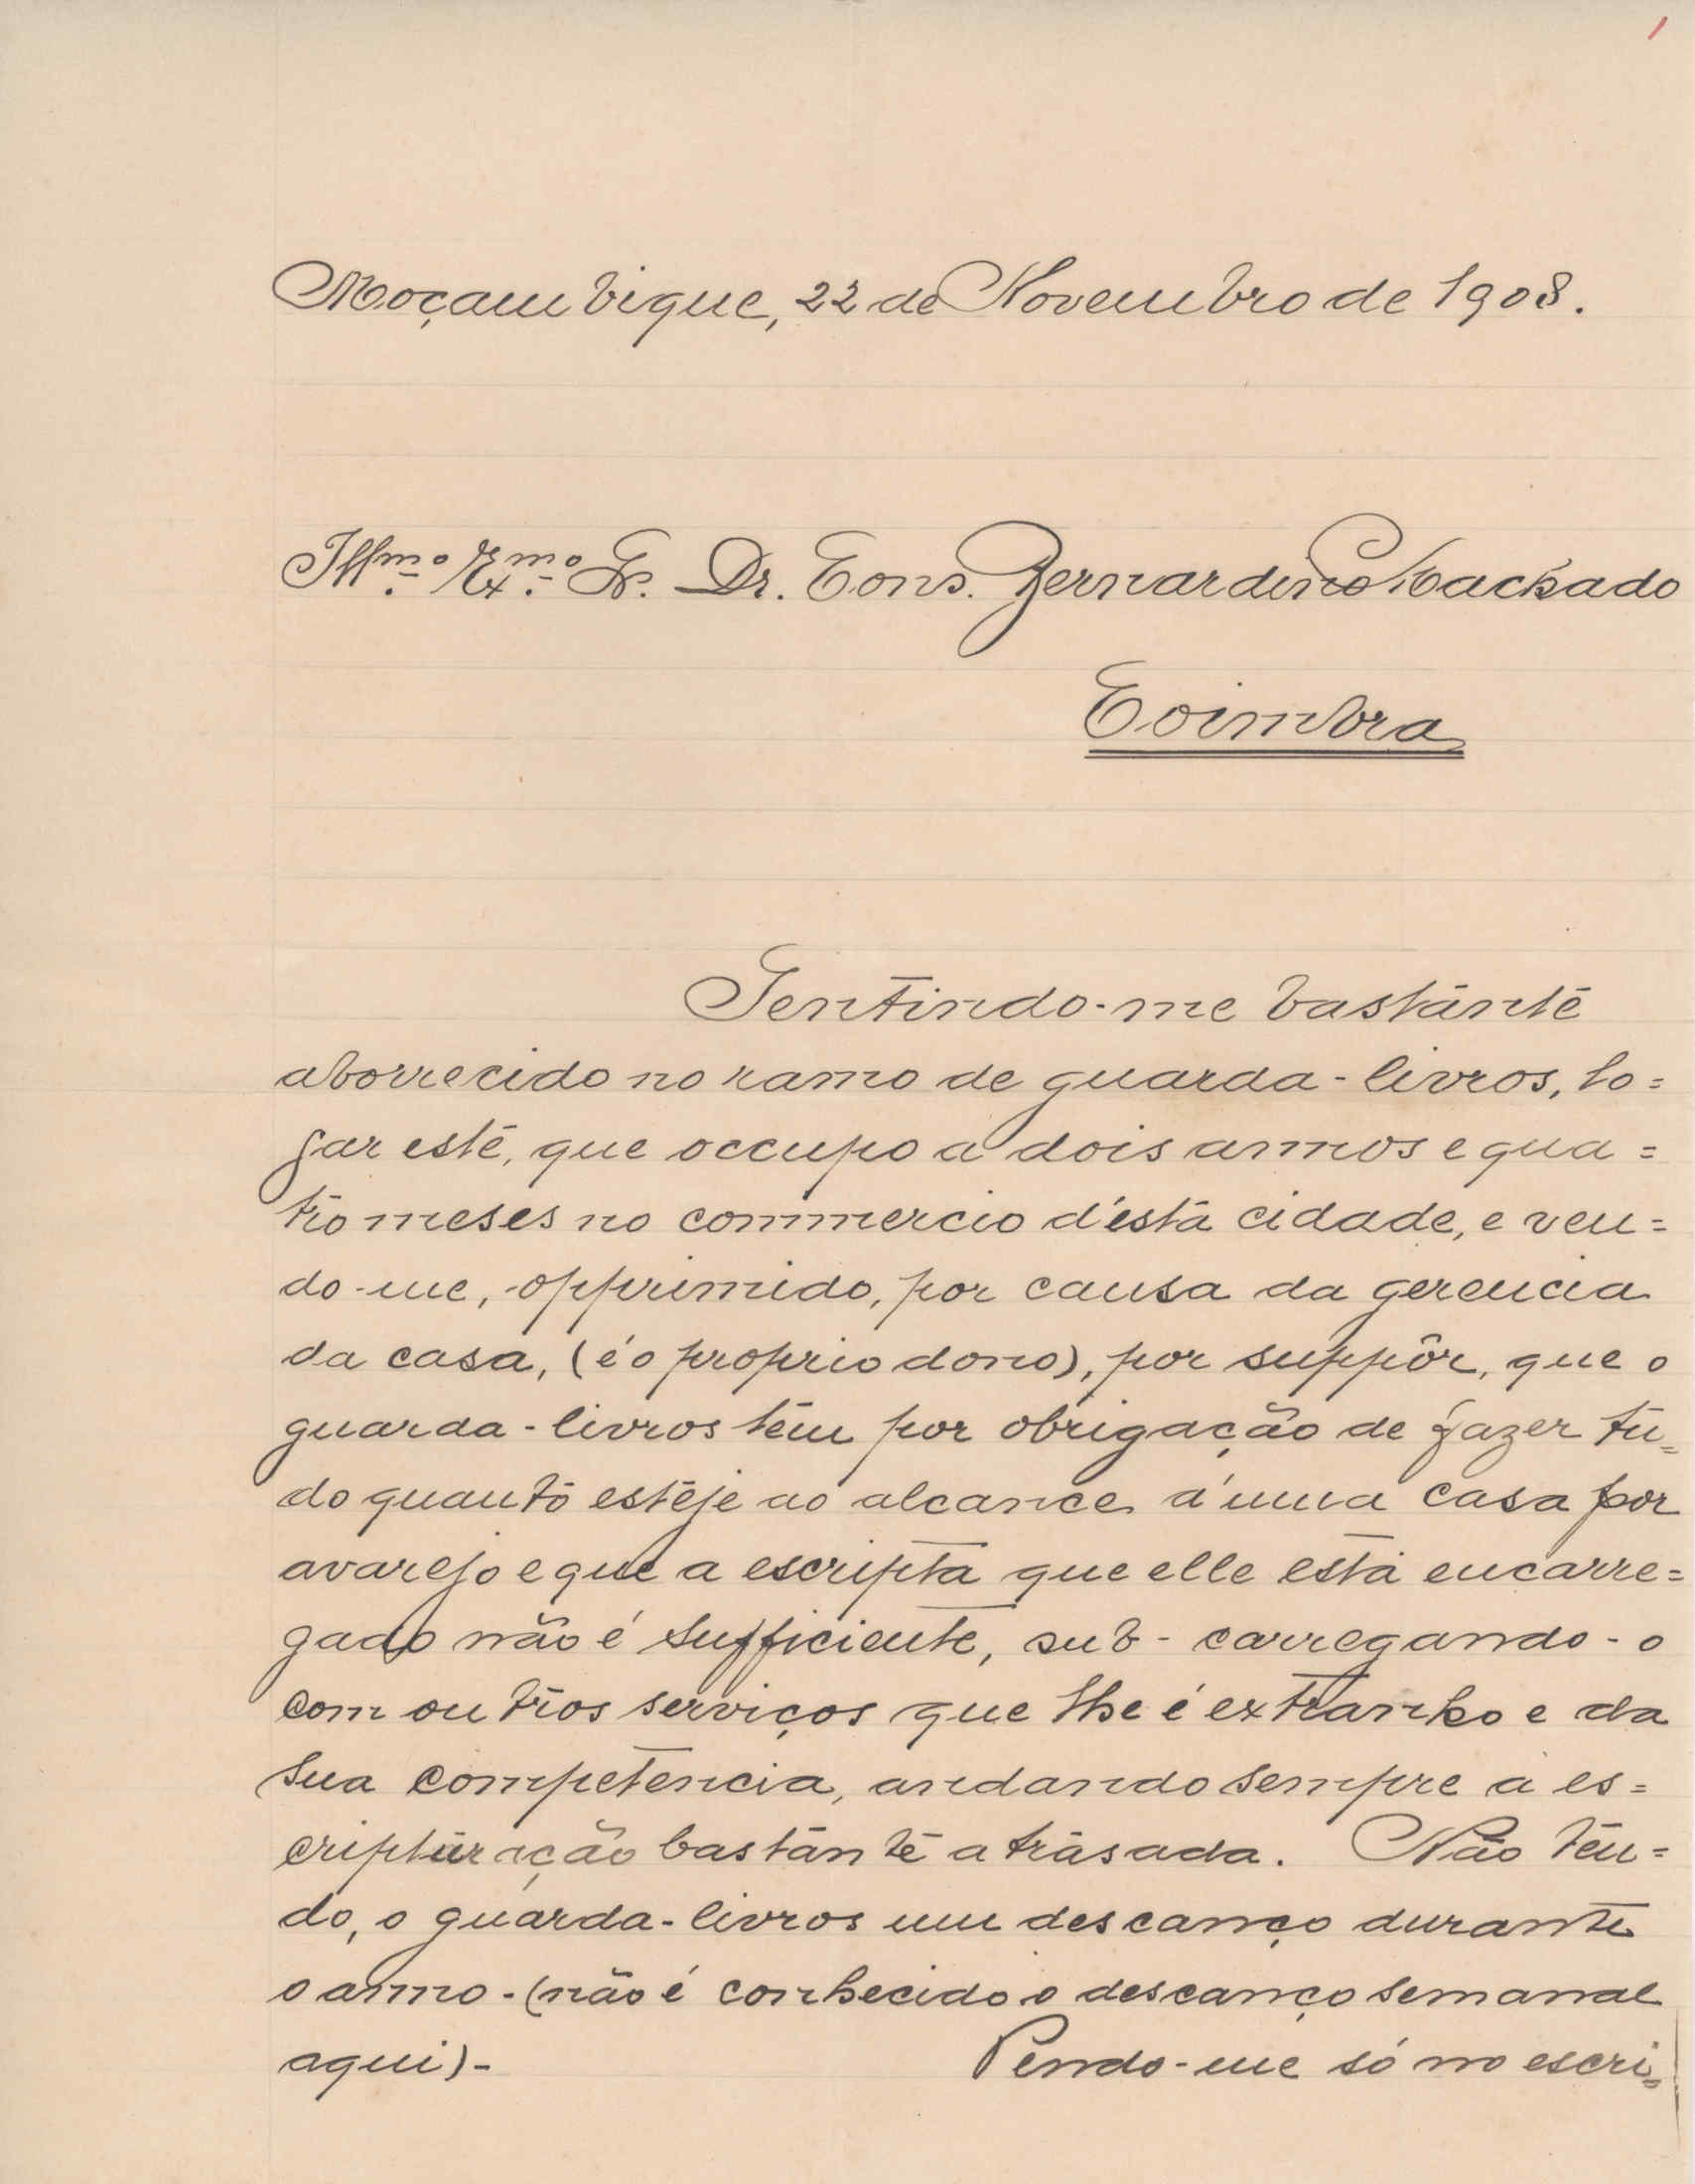 1
Moçambique, 22 de Novembro de 1908.
Illmo. Exmo. Sr. Dr. Cons. Bernardino Machado
Coimbra
Sentindo-me bastante
aborrecido no ramo de guarda-livros, lo=
gar este, que occupo a dois annos e qua=
tro meses no commercio d'esta cidade, e ven=
do-me, opprimido, por causa da gerencia
da casa, (é o proprio dono), por suppôr, que o
guarda-livros tem por obrigação de fazer tu=
do quanto esteje ao alcance d'uma casa por
avarejo e que a escripta que elle está encarre=
gado não é sufficiente, sub-carregando-o
com outros serviços que lhe é extranho e da
sua competencia, andando sempre a es=
cripturação bastante atrasada. Não ten=
do, o guarda-livros um descanço durante
o anno-(não é conhecido o descanço semanal
aqui)- Vendo-me só no escri=